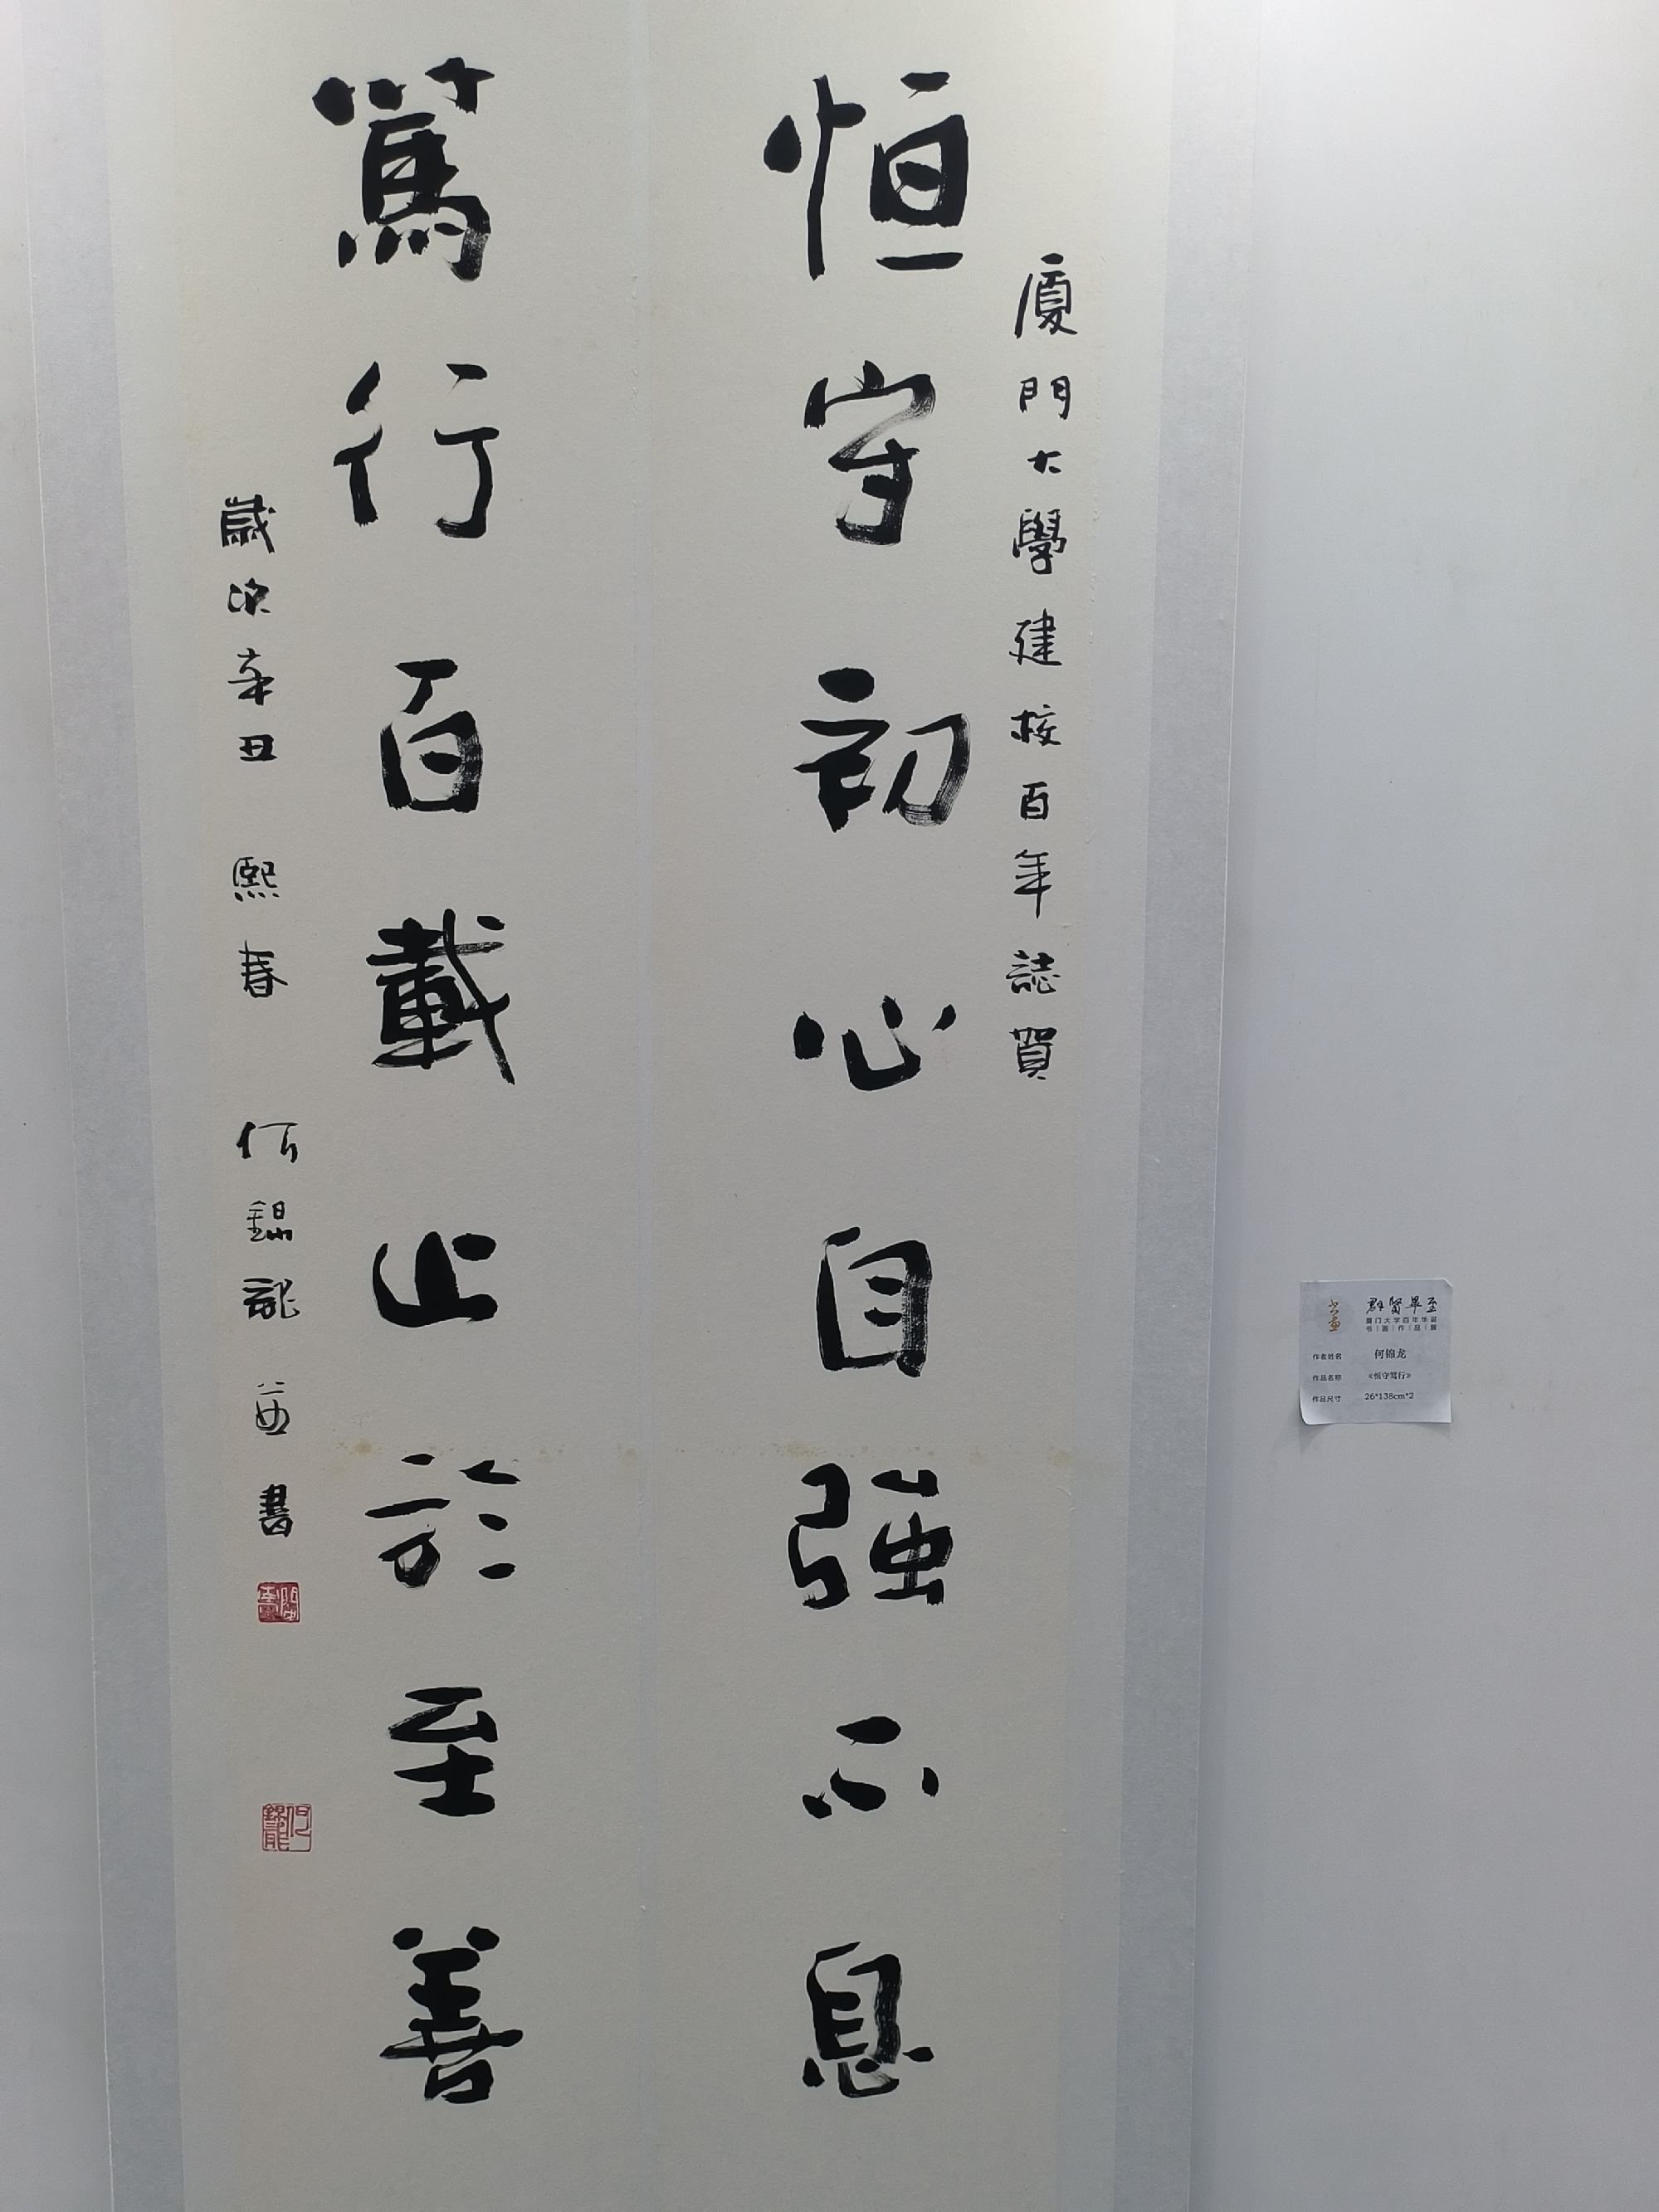 厦門大學建校百年誌賀
恒守初心自强不息
篤行百載止於至善
歲次辛丑 熙春 何錦龍 並書
群賢畢至
厦门大学百年华诞
书|画|作|品|展
作者姓名 何锦龙
作品名称 《恒守笃行》
作品尺寸 26*138cm*2
何錦龍